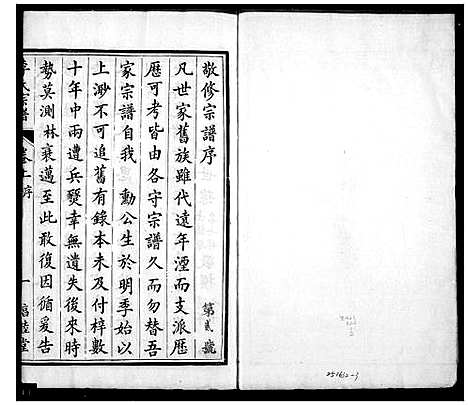 敬修宗譜序
第貳號
凡世家舊族雖代遠年湮而支派歷
歷可考皆由各守宗譜久而勿替吾
家宗譜自我
勳公生於明季始以
上渺不可追舊有錄本未及付梓數
十年中兩遭兵燹幸無遺失後來時
勢莫測林衰邁至此敢復因循爰告
李氏宗譜
卷上序
一
251612-3